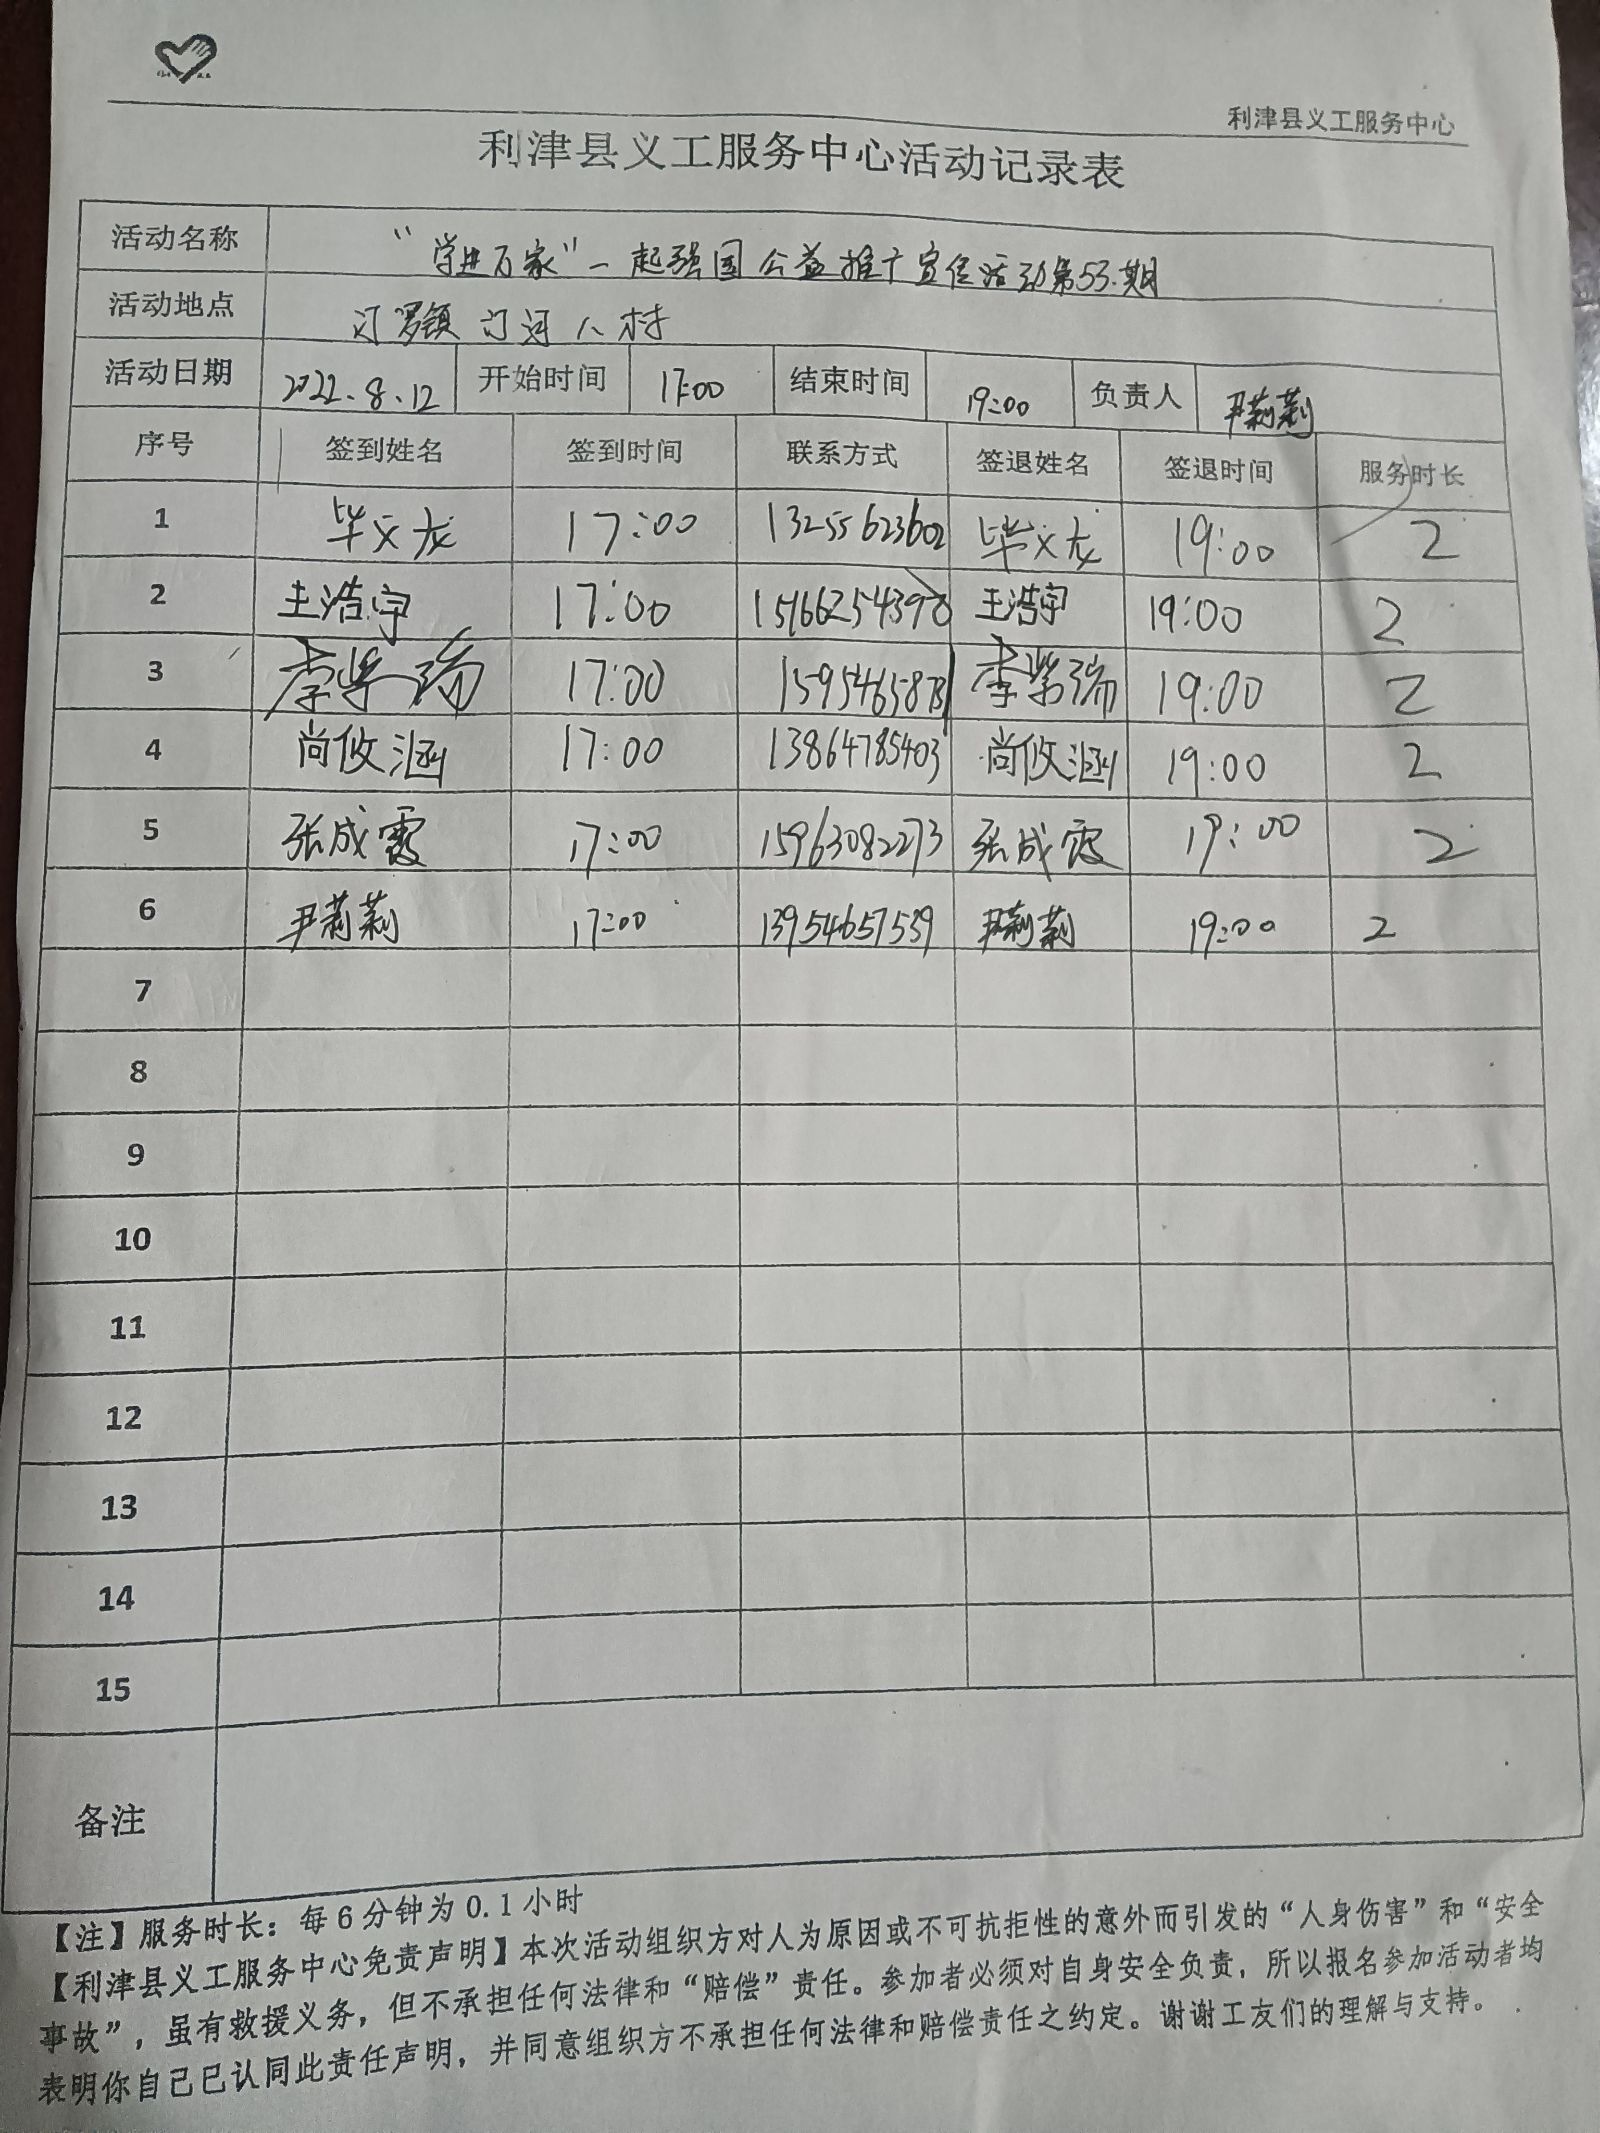 利津县义工服务中心
利津县义工服务中心活动记录表
活动名称 “学进万家”一起强国公益推广宣传活动第53期
活动地点 汀罗镇汀河八村
活动日期 2022.8.12 开始时间 17:00 结束时间 19:00 负责人 尹莉莉
序号 签到姓名 签到时间 联系方式 签退姓名 签退时间 服务时长
1 毕义龙 17:00 13255623602 毕义龙 19:00 2
2 王浩宇 17:00 王浩宇 19:00 2
3 李紫瑞 17:00 李紫瑞 19:00 2
4 尚攸涵 17:00 13864785403 尚攸涵 19:00 2
5 张成霞 17:00 15963082273 张成霞 19:00 2
6 尹莉莉 17:00 13954657539 尹莉莉 19:00 2
7
8
9
10
11
12
13
14
15
备注
【注】服务时长：每6分钟为0.1小时
【利津县义工服务中心免责声明】本次活动组织方对人为原因或不可抗拒性的意外而引发的“人身伤害”和“安全
事故”，虽有救援义务，但不承担任何法律和“赔偿”责任。参加者必须对自身安全负责，所以报名参加活动者均
表明你自己已认同此责任声明，并同意组织方不承担任何法律和赔偿责任之约定。谢谢工友们的理解与支持。